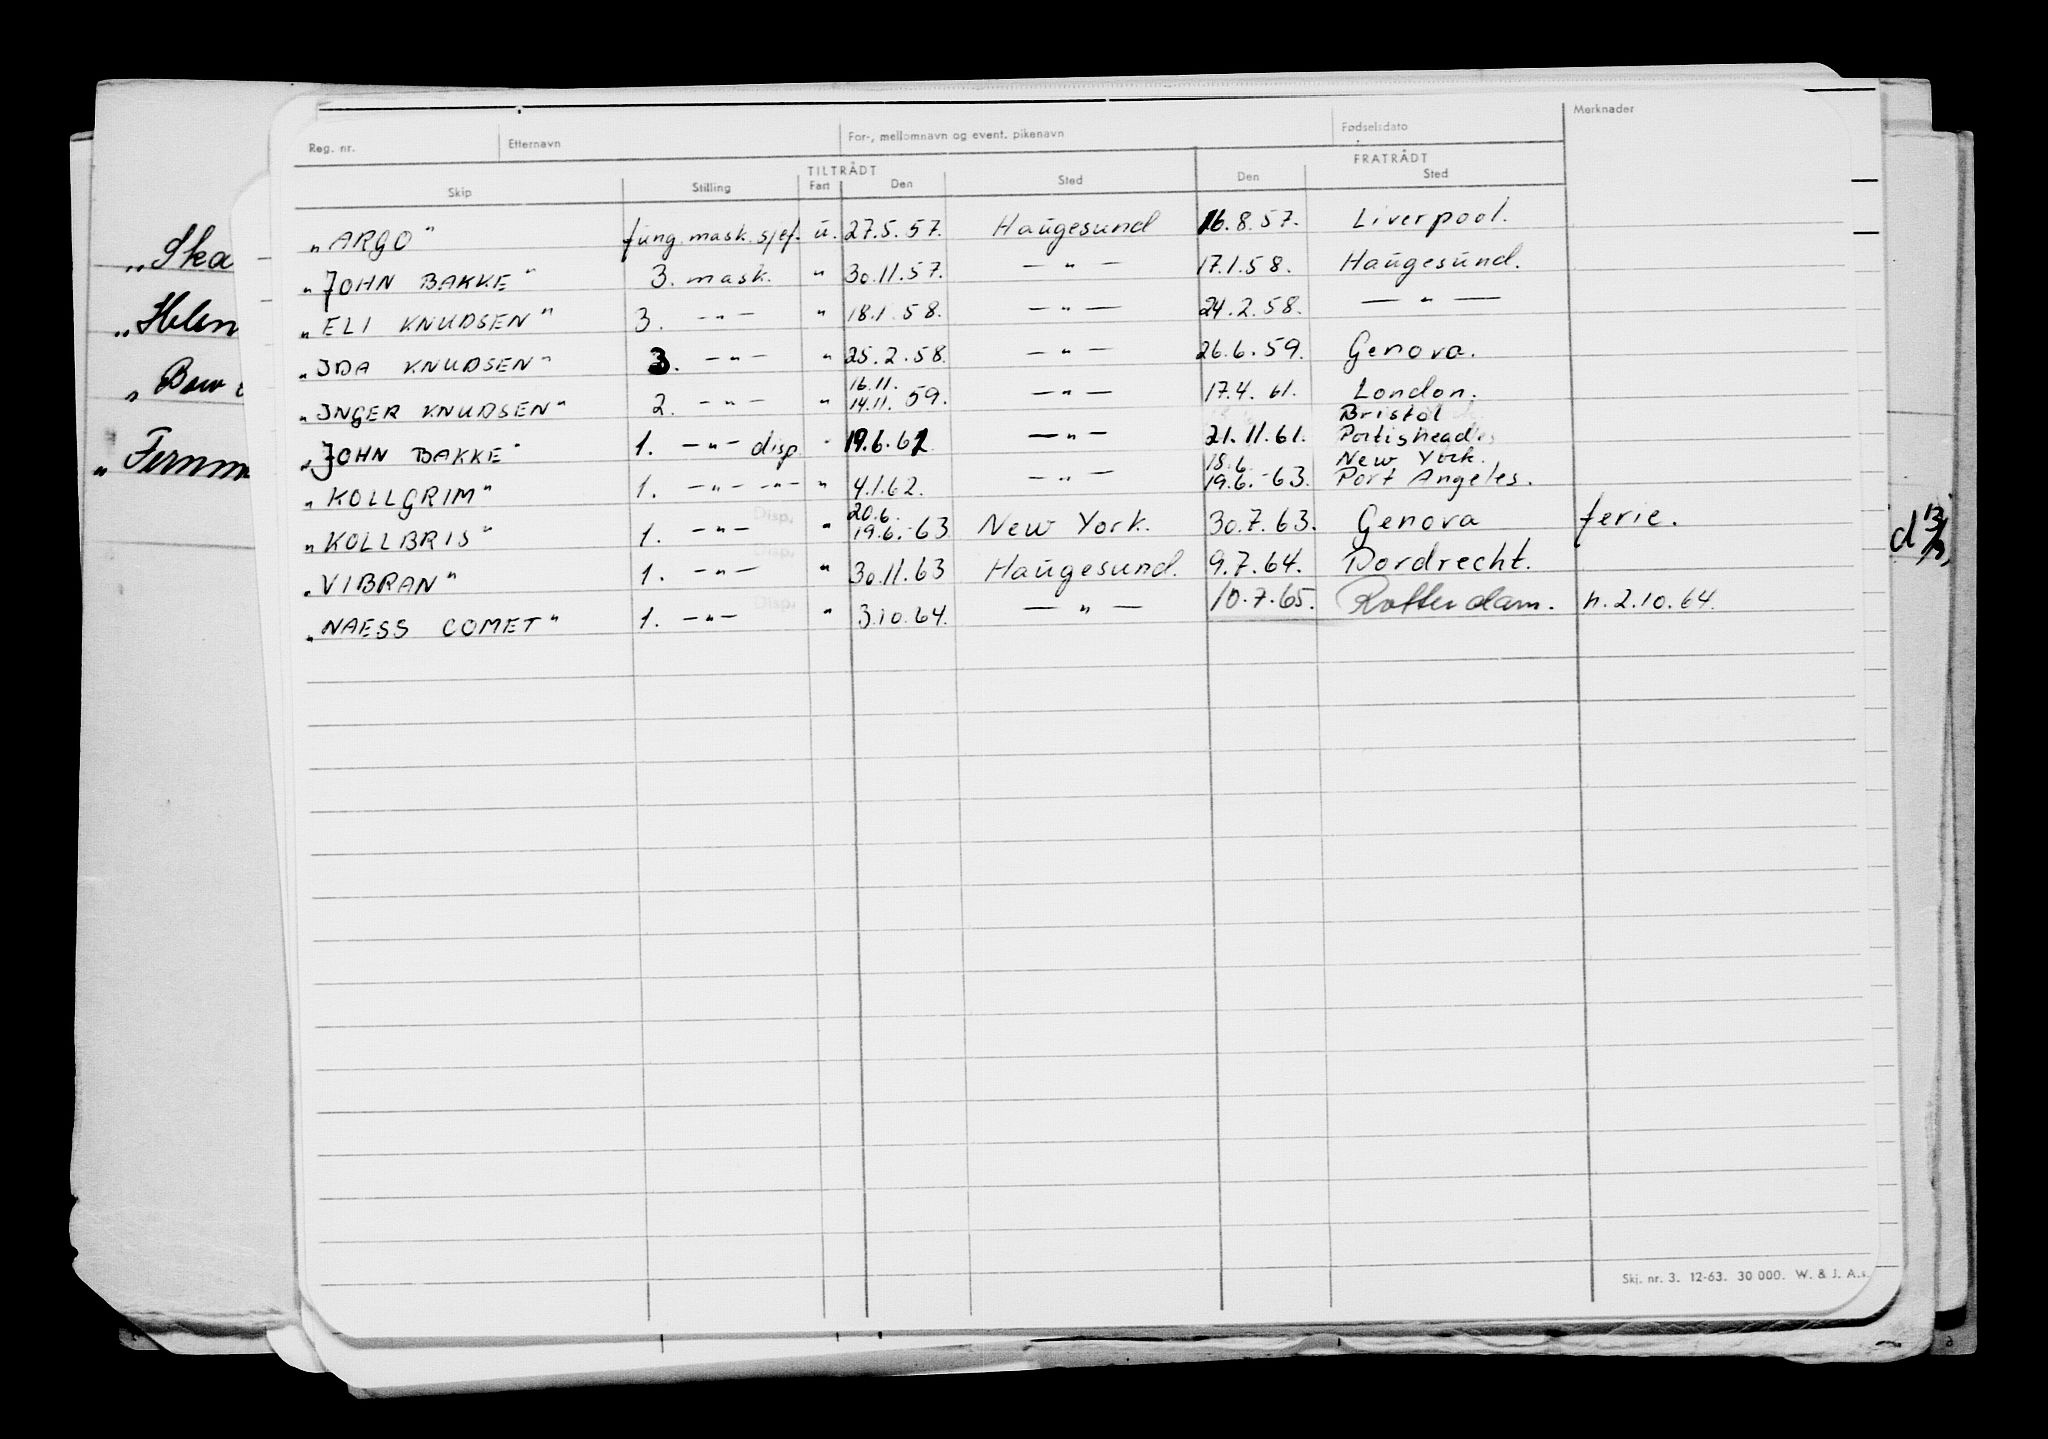 Merknader
Reg. nr. Etternavn For-, mellomnavn og event. pikenavn Fødselsdato
TILTRÅDT FRATRÅDT
Skip Stilling Fart Den Sted Den Sted
"ARGO" fung. mask. sjef. u. 27.5.57. Haugesund 16.8.57. Liverpool.
"JOHN BAKKE" 3. mask. " 30.11.57. — " — 17.1.58. Haugesund.
"ELI KNUDSEN" 3. — " — " 18.1.58. — " — 24.2.58. — " —
"IDA KNUDSEN" 3. — " — " 25.2.58. — " — 26.6.59. Genova.
"INGER KNUDSEN" 2. — " — " 16.11. 14.11. 59. — " — 17.4.61. London.
Bristol
"JOHN BAKKE" 1. — " — disp. " 19.6.61. — " — 21.11.61. Portishead
18.6. New York.
"KOLLGRIM" 1. — " — — " — " 4.1.62. — " — 19.6.-63. Port Angeles.
Disp. 20.6.
"KOLLBRIS" 1. — " — " 19.6.-63 New York. 30.7.63. Genova ferie.
Disp.
"VIBRAN" 1. — " — " 30.11.63 Haugesund. 9.7.64. Dordrecht.
Disp.
"NAESS COMET" 1. — " — " 3.10.64. — " — 10.7.65. Rotterdam. h. 2.10.64.
Skj. nr. 3. 12-63. 30 000. W. & J. A.s.
"Ska
"Helen
"Bow
"Fernm